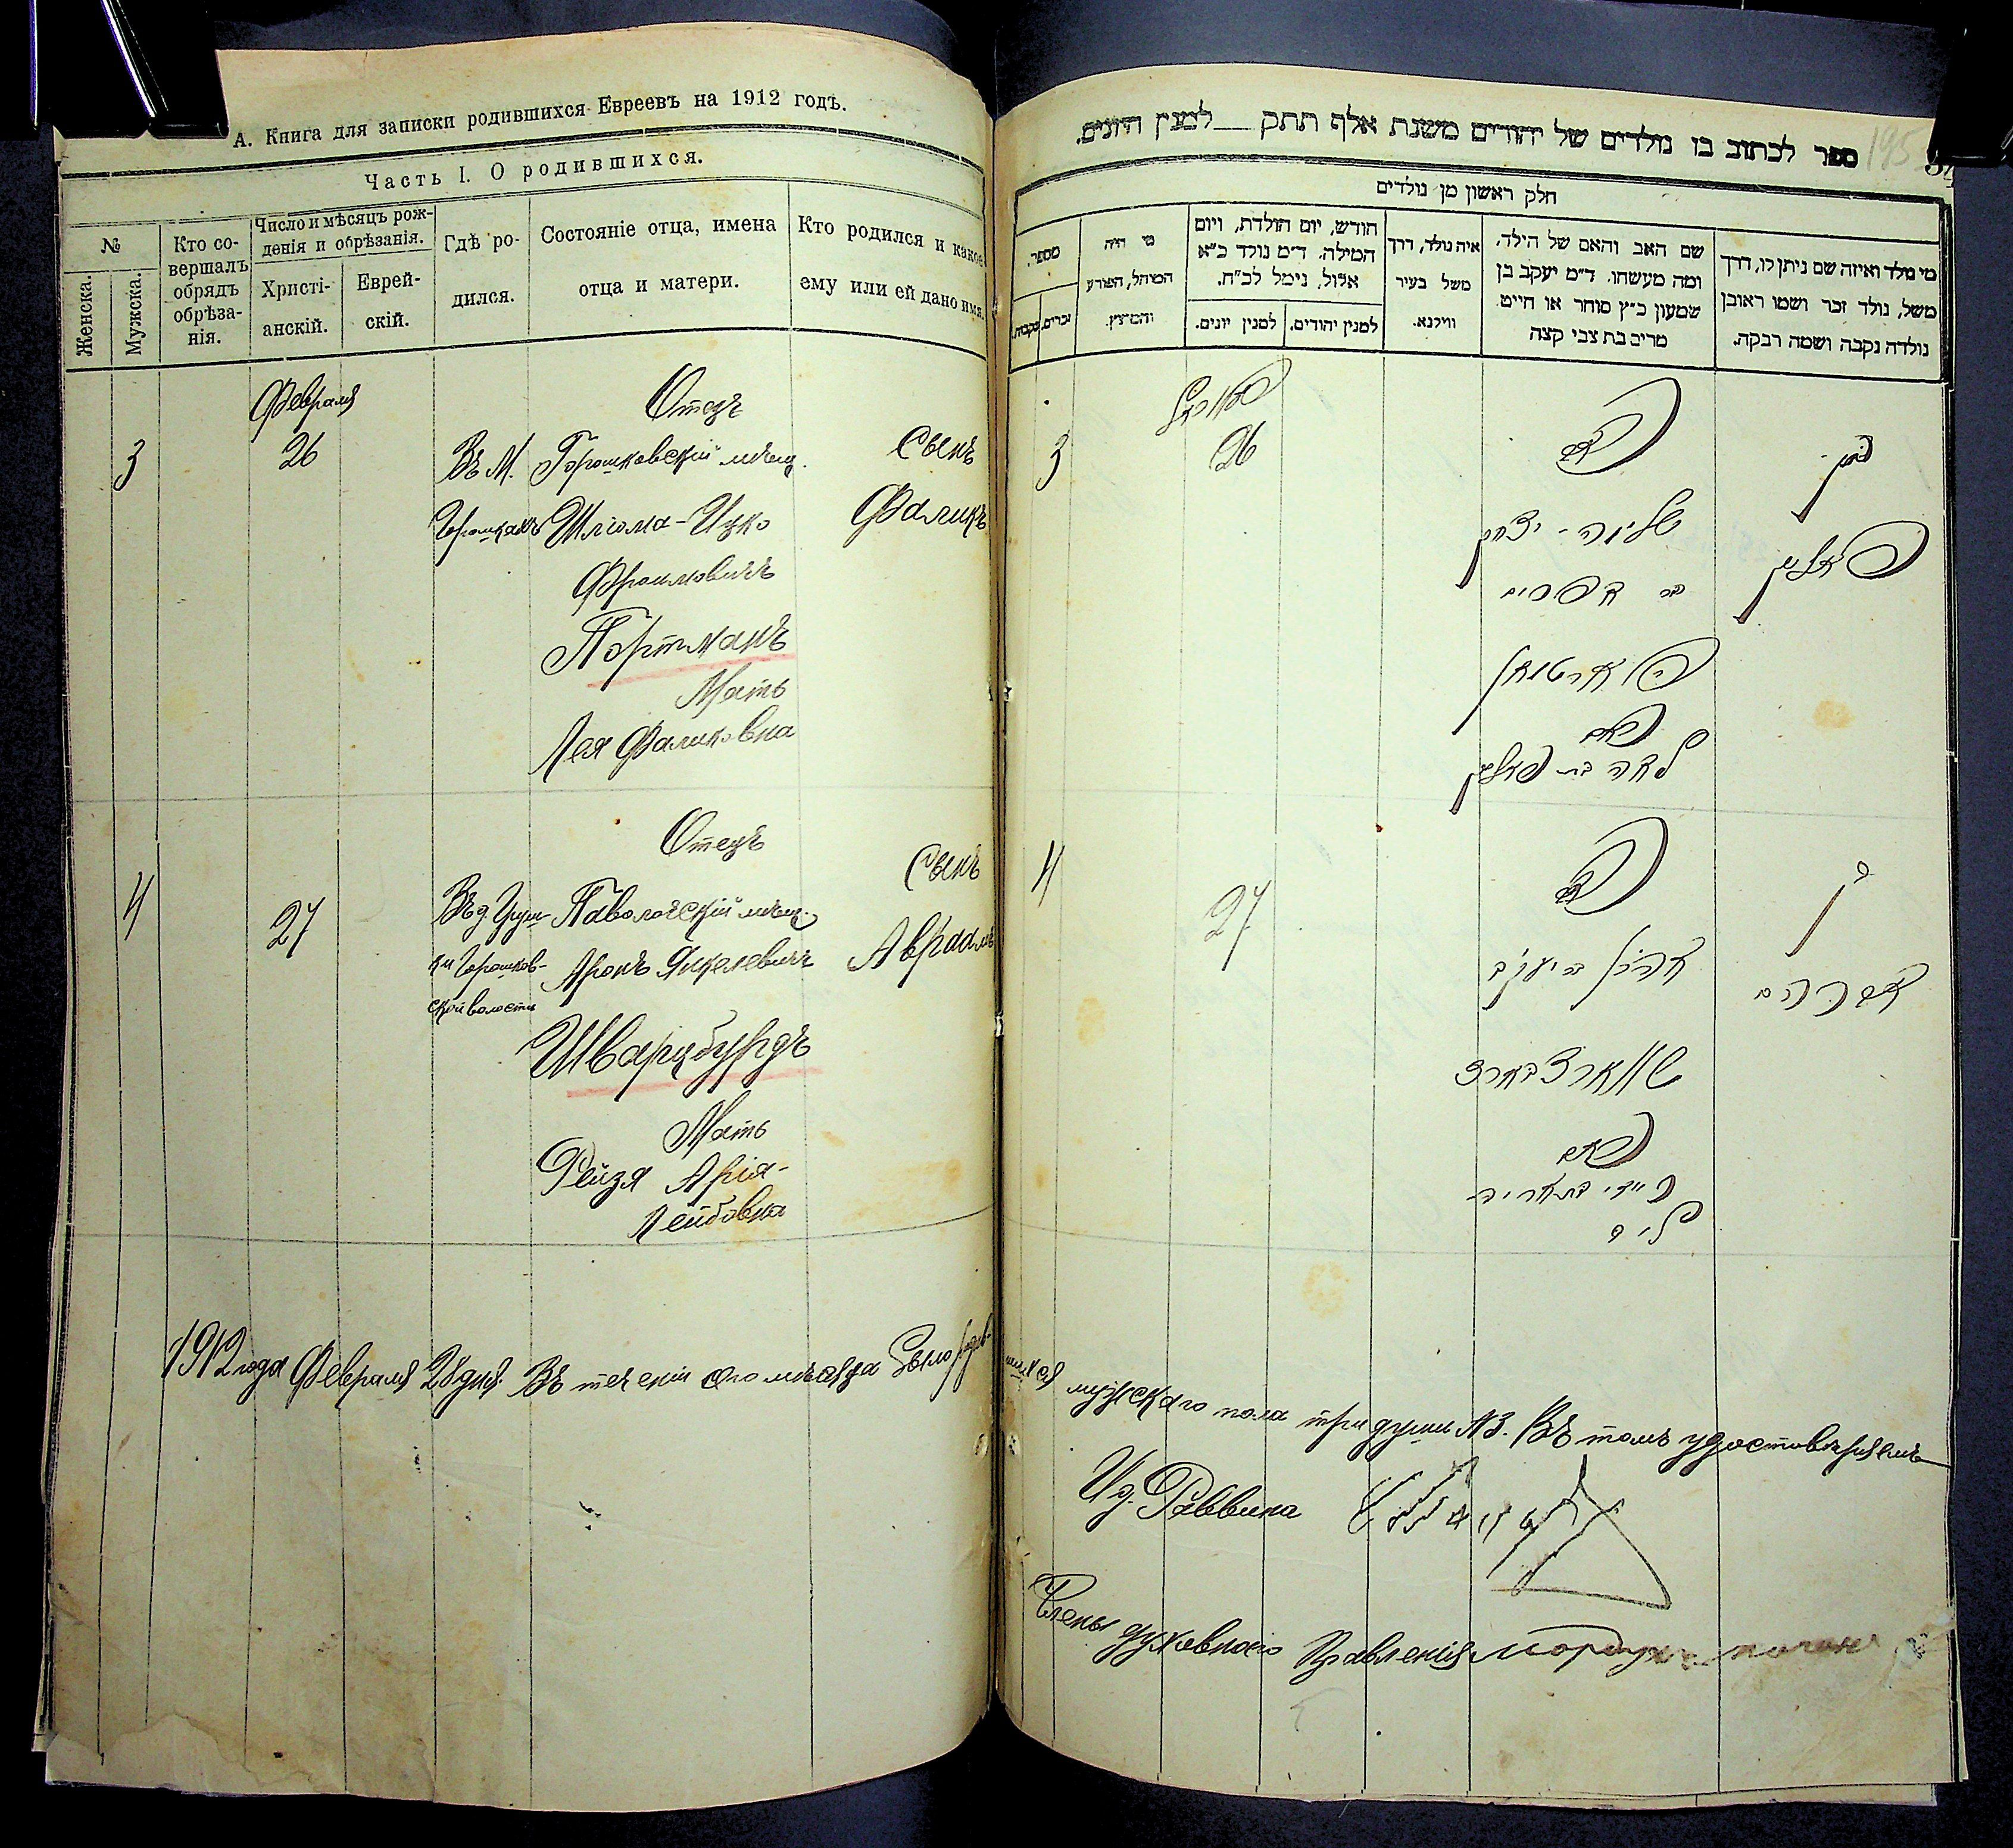 А. Книга для записки родившихся Евреевъ на 1912 годъ.
Часть I. О родившихся.
№
Женска.
Мужска.
Кто со-
вершалъ
обрядъ
обрѣза-
нія.
Число и мѣсяцъ рож-
денія и обрѣзанія.
Христі-
анскій.
Еврей-
скій.
Гдѣ ро-
дился.
Состояніе отца, имена
отца и матери.
Кто родился и какое
ему или ей дано имя.
Февраля
3
26
Въ М.
Горошкахъ
Отецъ
Горошковскій мѣщ.
Шлiома-Ицко
Фроимовичъ
Портманъ
Мать
Лея Фаликовна
Сынъ
Фаликъ
4
27
Въ д.
ки Горошков-
ской волости
Отецъ
Паволочскій мѣщ.
Аронъ Янкелевичъ
Шварцбурдъ
Мать
Рейзя Арія-
Лейбовна
Сынъ
Авраамъ
1912 года Февраля 28 дня. Въ теченіи сего мѣсяца было родив-
ספר לכתוב בו נולדים של יהודים משנת אלף תתק — למנין היונים.
195
חלק ראשון מן נולדים
מספר.
זכרים.
נקבות.
מי היה
המוהל, הפורע
והמוצץ.
חודש, יום הולדת, ויום
המילה. ד״מ נולד כ״א
אלול, נימל לכ״ח.
למנין יונים.
למנין יהודים.
איה נולד, דרך
משל בעיר
ווילנא.
שם האב והאם של הילד,
ומה מעשהו. ד״מ יעקב בן
שמעון כ״ץ סוחר או חייט
מרים בת צבי קצה
מי נולד ואיזה שם ניתן לו, דרך
משל, נולד זכר ושמו ראובן
נולדה נקבה ושמה רבקה.
3
26
האב
שלמה - יצחק
בר אפרים
פארטמאן
האם
לאה בת פאליק
בן
פאליק
4
27
האב
אהרן בר יעקב
שווארצבארד
האם
רייזי בת אריה
ליב
בן
אברהם
шихся мужскаго пола три души №3. Въ томъ удостовѣряемъ
И д. Раввина
Члены духовнаго Правленія